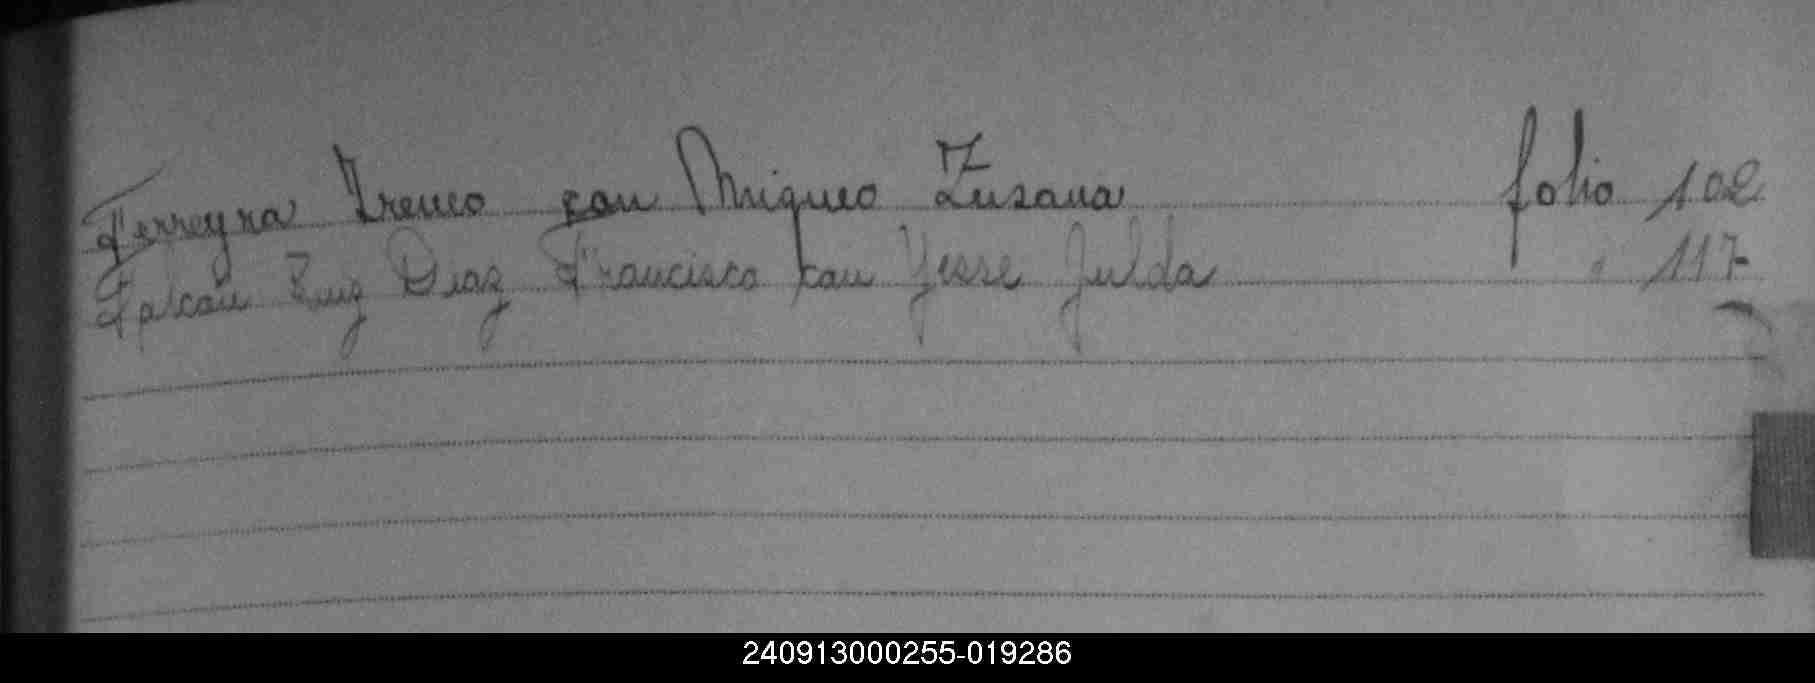 Ferreyra Ireneo con Miqueo Zusana folio 102
Falcon Ruiz Diaz Francisco con Yesse Julda " 117
240913000255-019286